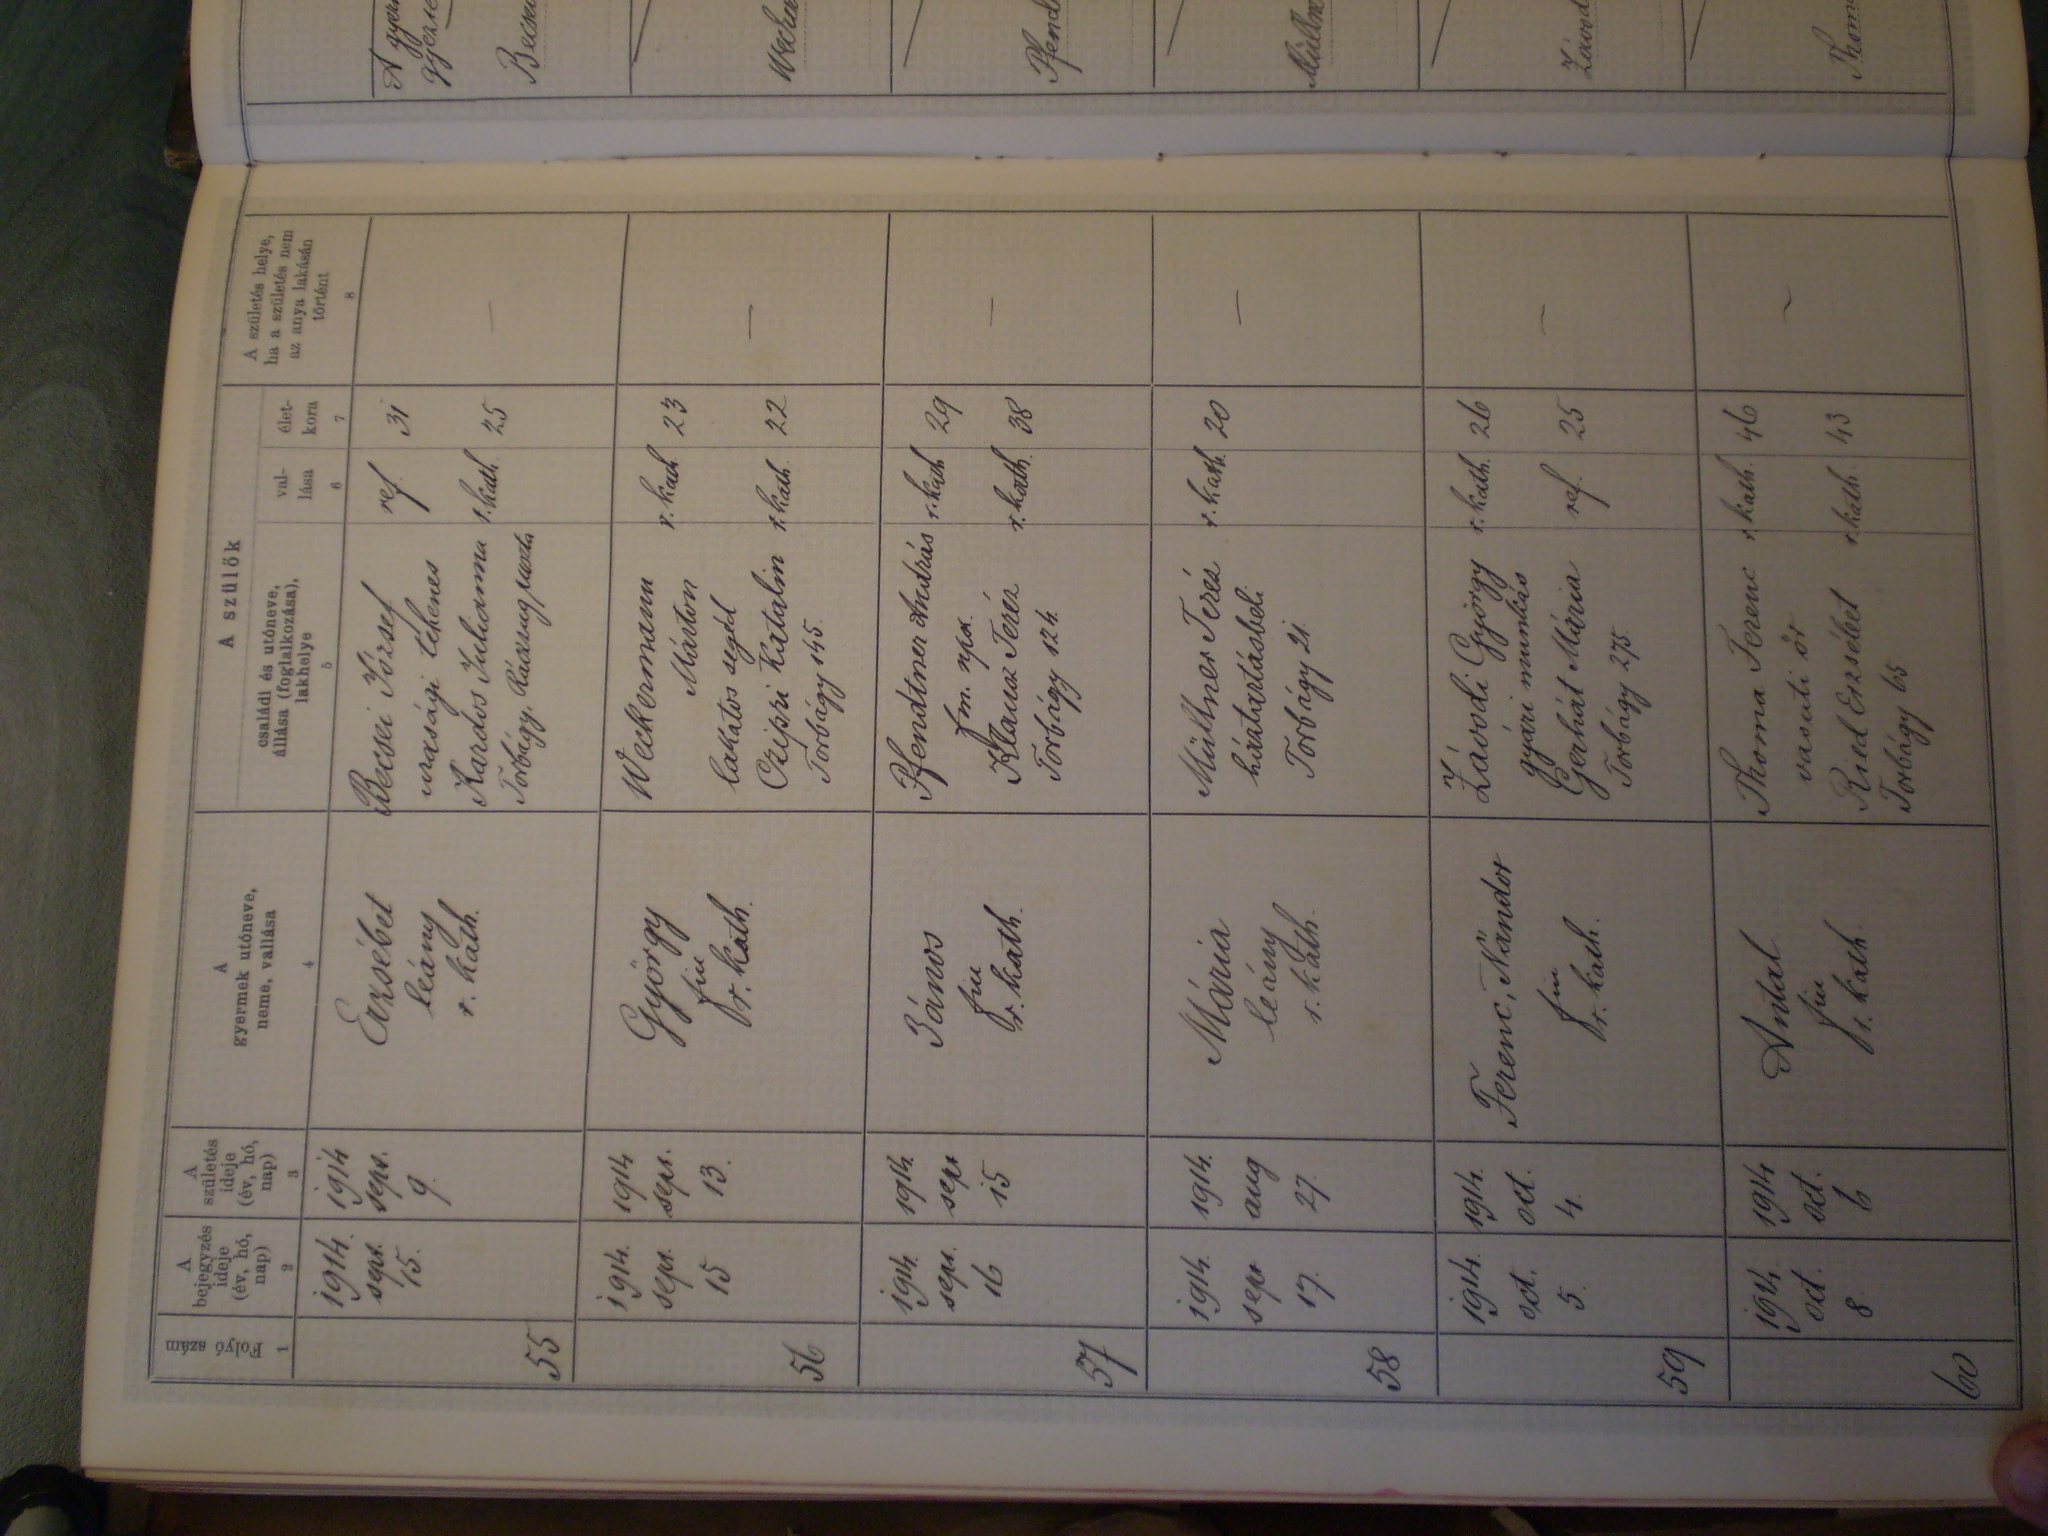 1
Folyó szám
2
A
bejegyzés
ideje
(év, hó,
nap)
3
A
születés
ideje
(év, hó,
nap)
4
A
gyermek utóneve,
neme, vallása
A szülők
5
családi és utóneve,
állása (foglalkozása),
lakhelye
6
val-
lása
7
élet-
kora
8
A születés helye,
ha a születés nem
az anya lakásán
történt
55
1914.
sept.
15.
1914
sept.
9.
Erzsébet
leány
r. kath.
Becsei József
urasági tehenes
Kardos Julianna
Torbágy,
ref.
r. kath.
31
25
—
56
1914.
sept.
15
1914
sept.
13.
György
fiu
r. kath.
Weckermann
Márton
lakatos segéd
Czipri Katalin
Torbágy 145.
r. kath
r. kath.
23
22
—
57
1914.
sept.
16
1914.
sept
15
János
fiu
r. kath.
Pfendtner András
fm. nps.
Klausz Teréz
Torbágy 124.
r. kath
r. kath.
29
38
—
58
1914.
sept
17.
1914.
aug
27.
Mária
leány
r. kath.
Müllner Teréz
háztartásbeli
Torbágy 21.
r. kath.
20
—
59
1914.
oct.
5.
1914.
oct.
4.
Ferenc, Nándor
fiu
r. kath.
Závodi György
gyári munkás
Gerhát Mária
Torbágy 275.
r. kath.
ref.
26
25
—
60
1914.
oct.
8.
1914
oct.
6
Antal
fiu
r. kath.
Thoma Ferenc
vasuti őr
Ried Erzsébet
Torbágy 65
r. kath.
r. kath.
46
43
~